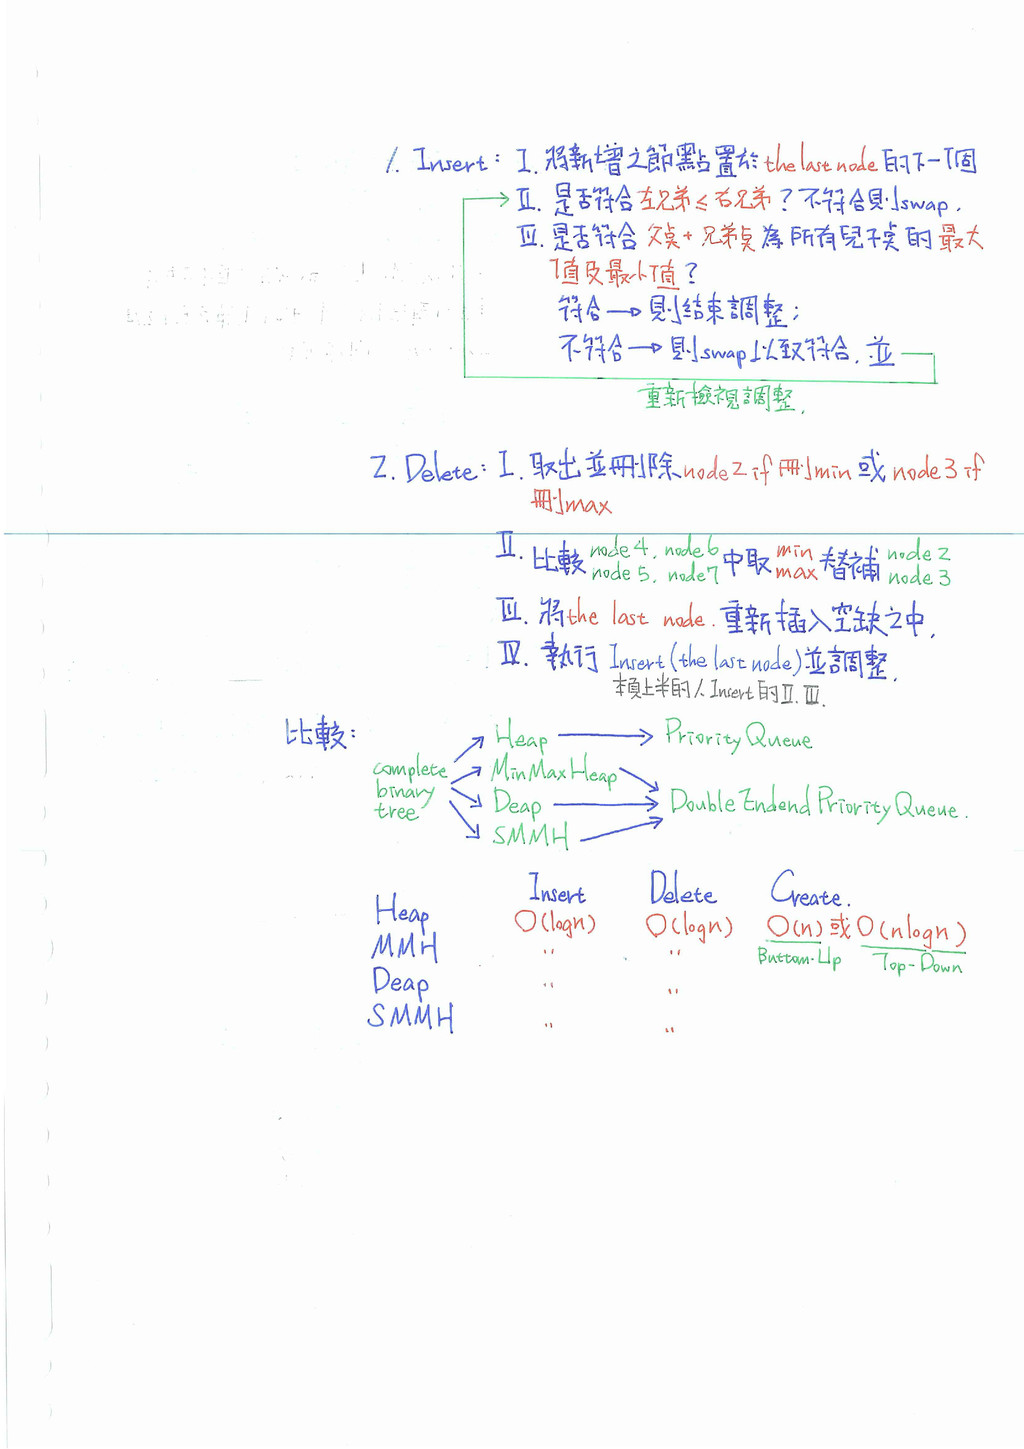 1. Insert: I. 將新增之節點置於the last node的下一個
II. 是否符合左兄弟≤右兄弟？不符合則swap.
III. 是否符合 父臭+兄弟臭為所有兒子臭的最大
值及最小值？
符合→則結束調整；
不符合→則swap以致符合，並
重新檢視調整.
2. Delete: I. 取出並刪除node 2 if 刪min或node 3 if
刪max
II. 比較 node 4, node 6 中取 min 替補 node 2
node 5, node 7 max node 3
III. 將the last node. 重新插入空缺之中.
IV. 執行 Insert (the last node)並調整.
本頁上半的1. Insert的II. III.
比較:
Heap → Priority Queue
complete binary tree
MinMaxHeap
Deap → Double Endend Priority Queue.
SMMH
Insert Delete Create.
Heap O(logn) O(logn) O(n) 或 O(nlogn)
MMH " " Buttom-Up Top-Down
Deap " "
SMMH " "